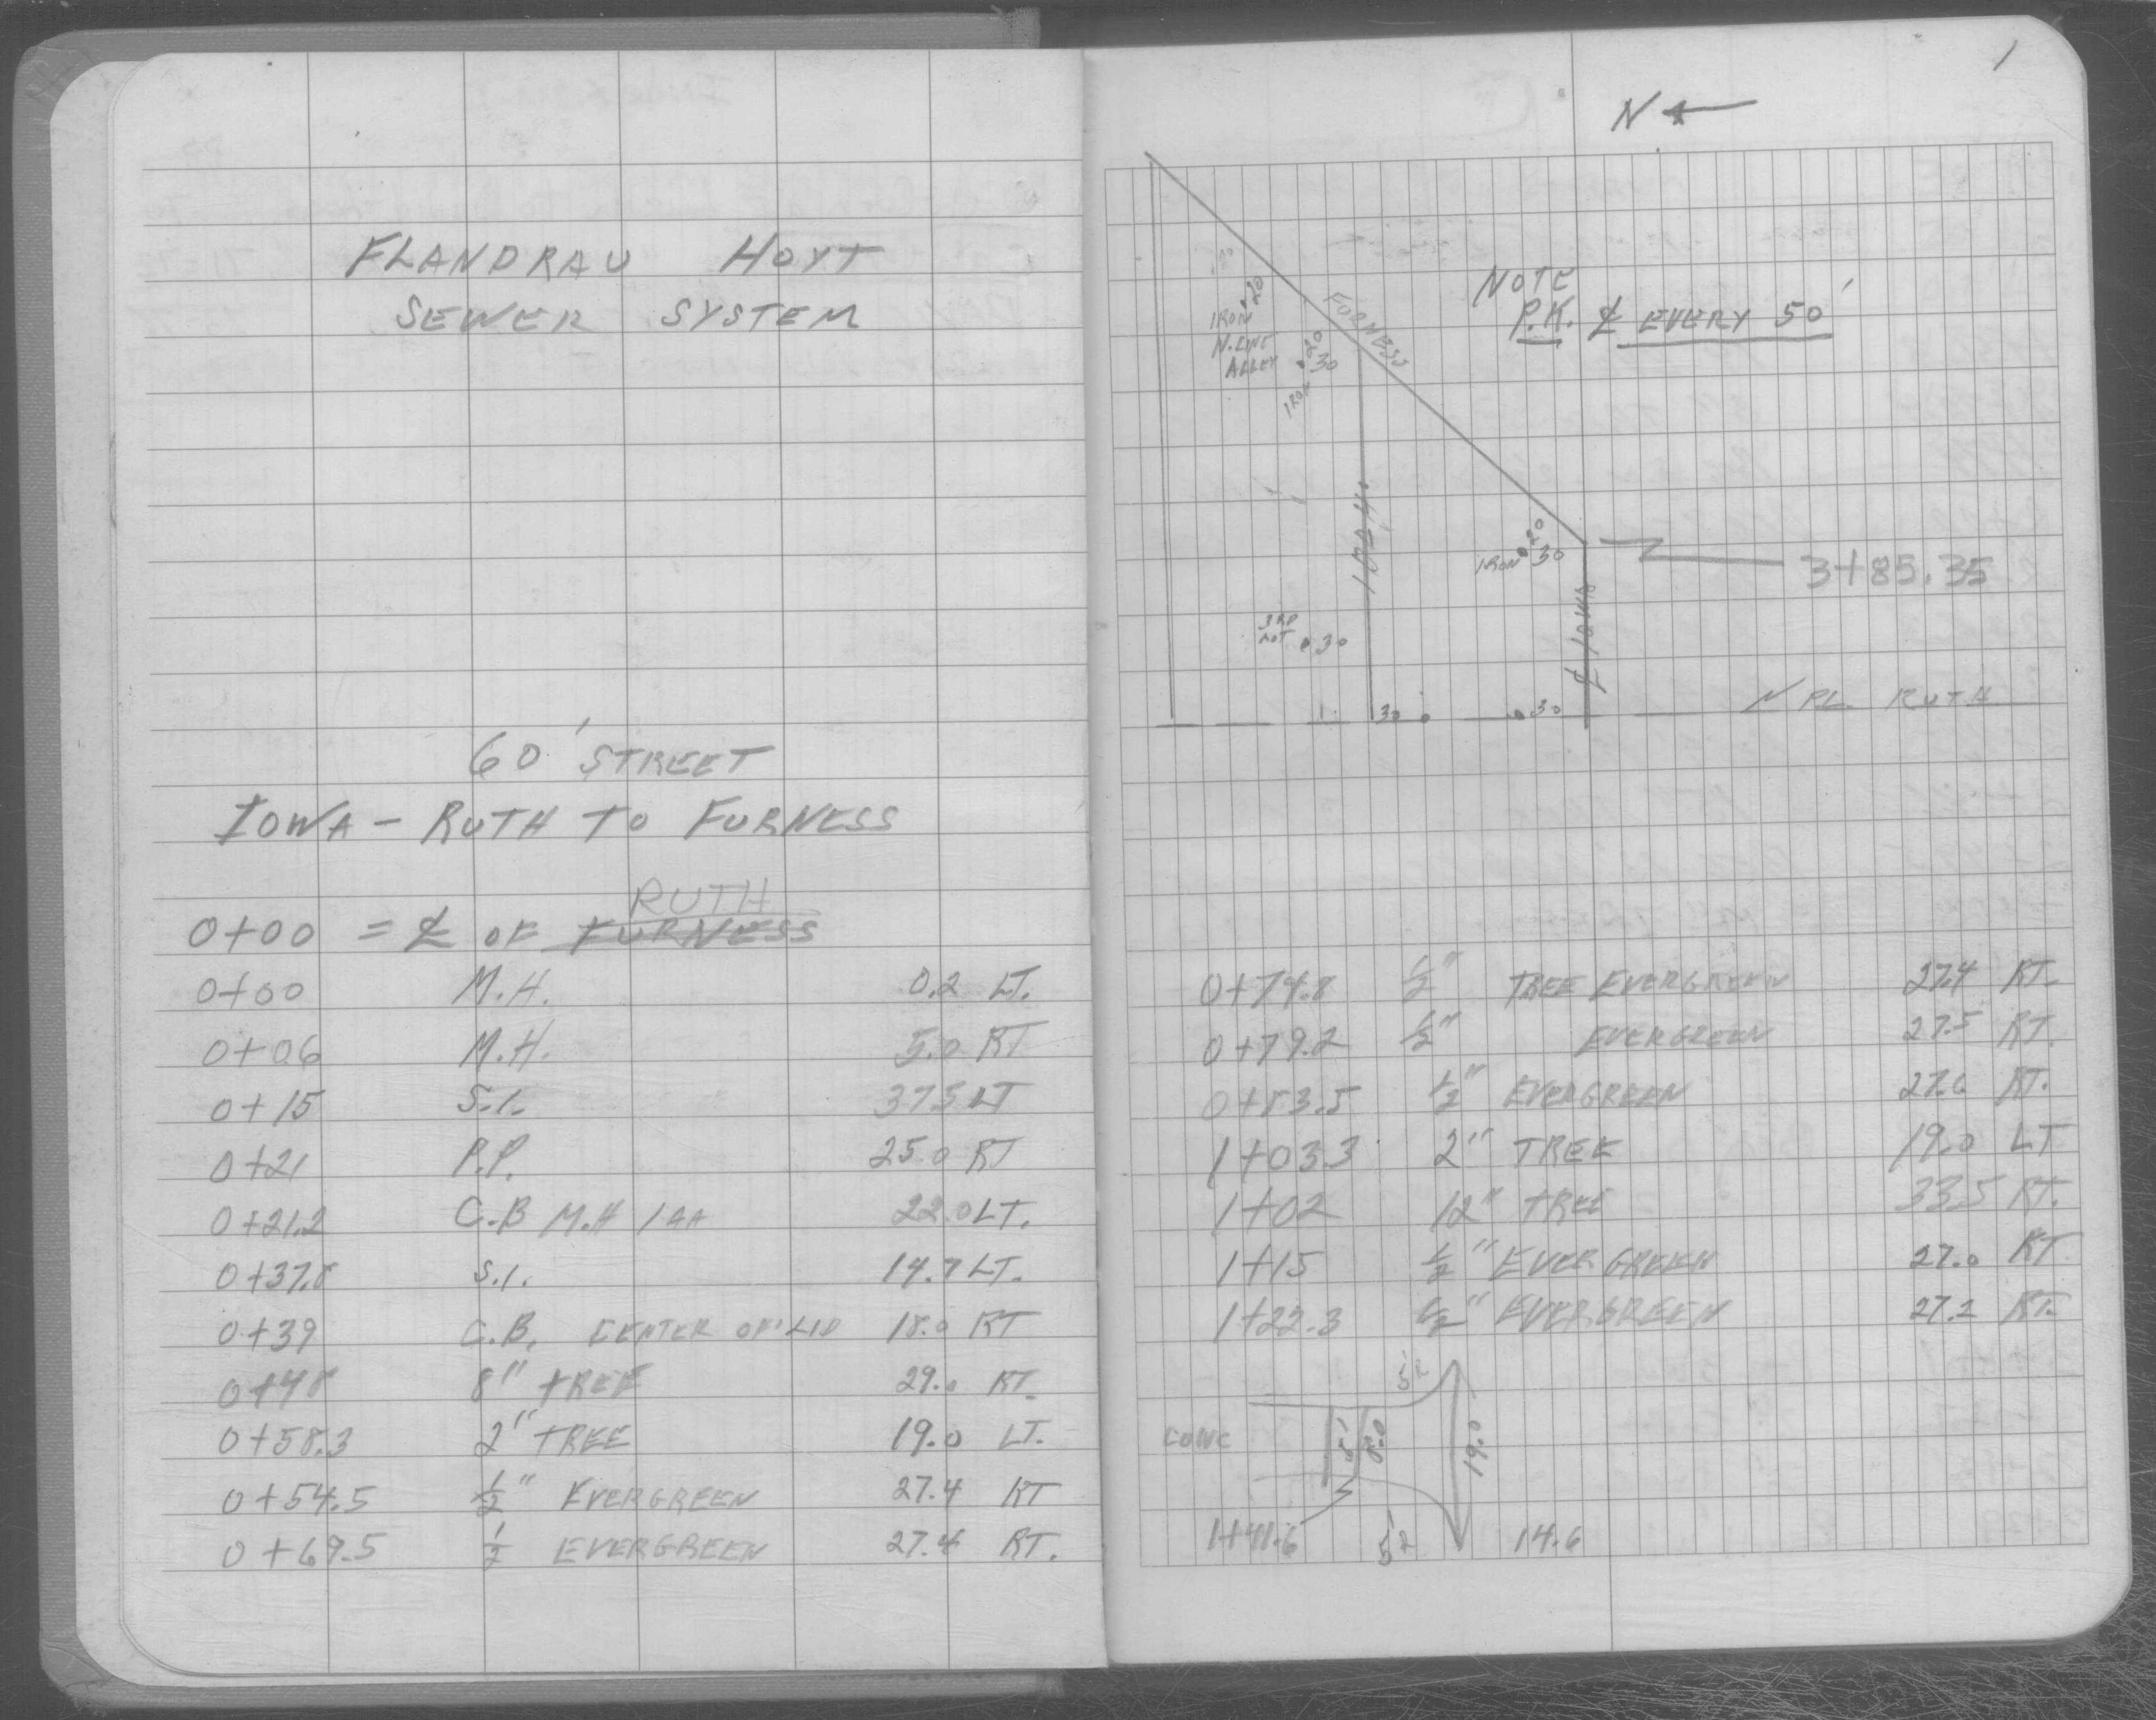 FLANDRAU HOYT
SEWER SYSTEM
60' STREET
IOWA - RUTH TO FURNESS
RUTH
0+00 = ℄ OF FURNESS
0+00 M.H. 0.2 LT.
0+06 M.H. 5.0 RT
0+15 S.I. 37.5 LT
0+21 P.P. 25.0 RT
0+21.2 C.B M.H 22.0 LT.
0+37.8 S.I. 14.7 LT.
0+39 C.B. CENTER OF LID 18.0 RT
0+48 8" TREE 29.0 RT.
0+58.3 2" TREE 19.0 LT.
0+54.5 ½" EVERGREEN 27.4 RT
0+69.5 ½ EVERGREEN 27.4 RT.
1
N
NOTE
P.K. ℄ EVERY 50'
FURNESS
20
IRON
N. LINE
ALLEY
20
30
IRON
20
IRON 30
3+85.35
℄ IOWA
3RD
LOT 30
30 30
N PL. RUTH
0+74.8 ½" TREE EVERGREEN 27.4 RT.
0+79.2 ½" EVERGREEN 27.5 RT.
0+83.5 ½" EVERGREEN 27.6 RT.
1+03.3 2" TREE 19.0 LT
1+02 12" TREE 33.5 RT.
1+15 ½" EVERGREEN 27.0 RT
1+22.3 ½" EVERGREEN 27.2 RT.
CONC
8.0
19.0
1+41.6
14.6